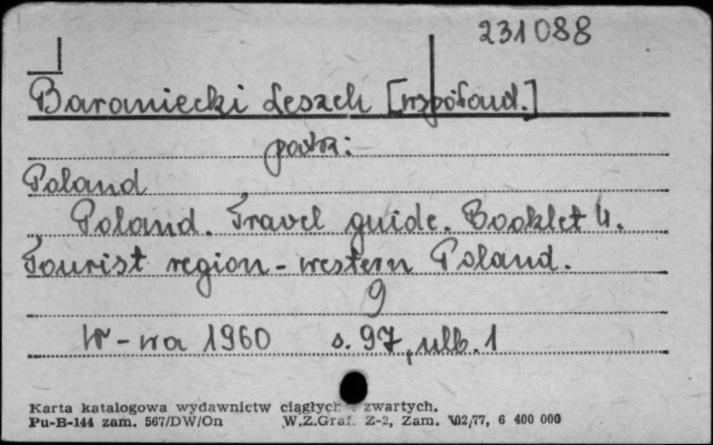 231088
Baraniecki Leszek [współaut.]
patrz:
Poland
Poland. Travel guide. Booklet 4.
Tourist region - western Poland.
9
W-wa 1960 s. 97, nlb. 1
Karta katalogowa wydawnictw ciągłych i zwartych.
Pu-B-144 zam. 567/DW/On W.Z.Graf. Z-2, Zam. 102/77, 6 400 000